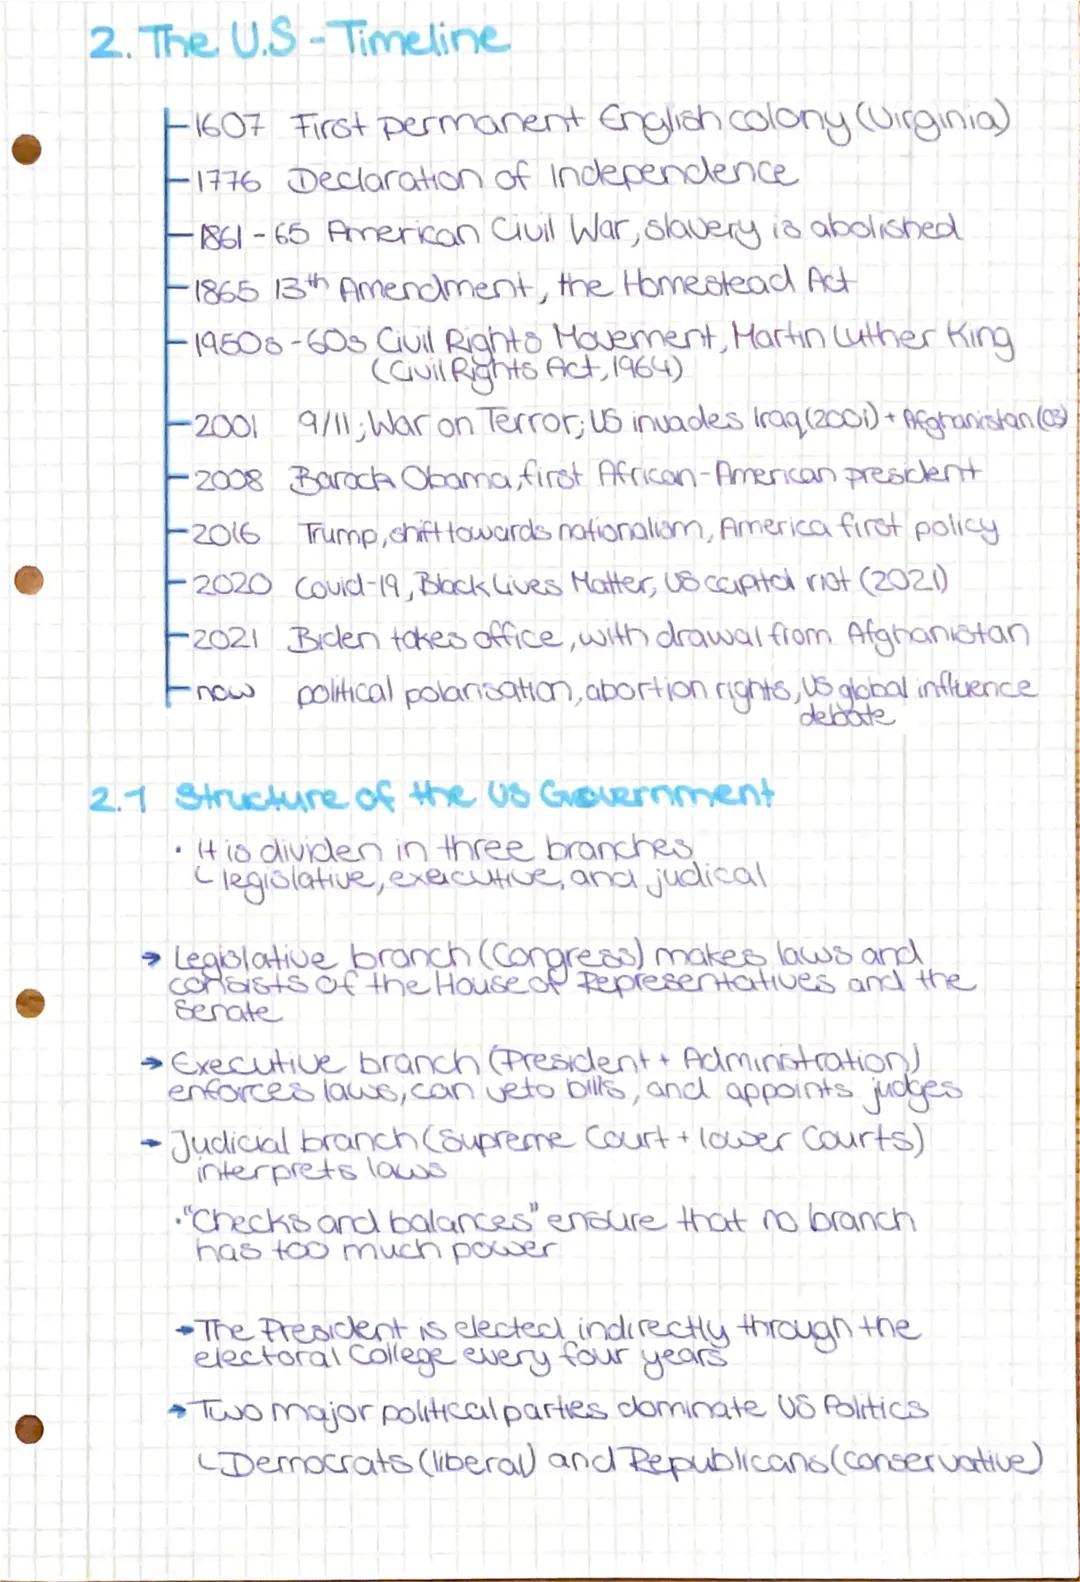 2. The U.S - Timeline
1607 First permanent English colony (Virginia)
1776 Declaration of Independence
1861-65 American Civil War, slavery is abolished
1865 13th Amendment, the Homestead Act
1950s-60s Civil Rights Movement, Martin Luther King
(Civil Rights Act, 1964)
2001 9/11; War on Terror; US invades Iraq (2001) + Afghanistan (03)
2008 Barack Obama, first African-American president
2016 Trump, shift towards nationalism, America first policy
2020 Covid-19, Black Lives Matter, US capitol riot (2021)
2021 Biden takes office, with drawal from Afghanistan
now political polarisation, abortion rights, US global influence
debate
2.1 Structure of the US Government
· It is dividen in three branches
↳ legislative, executive, and judical
→ Legislative branch (Congress) makes laws and
consists of the House of Representatives and the
Senate
→ Executive branch (President + Administration)
enforces laws, can veto bills, and appoints judges
→ Judicial branch (Supreme Court + lower Courts)
interprets laws
· "Checks and balances" ensure that no branch
has too much power
→ The President is elected indirectly through the
electoral College every four years
→ Two major political parties dominate US Politics
↳ Democrats (liberal) and Republicans (conservative)